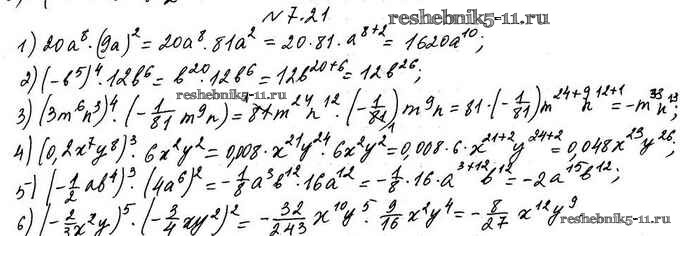 № 7.21
reshebnik5-11.ru
1) 20a⁸·(9a)² = 20a⁸·81a² = 20·81·a⁸⁺² = 1620a¹⁰;
2) (-b⁵)⁴·12b⁶ = b²⁰·12b⁶ = 12b²⁰⁺⁶ = 12b²⁶;
3) (3m⁶n³)⁴·(-1/81 m⁹n) = 81m²⁴n¹²·(-1/81)m⁹n = 81·(-1/81)m²⁴⁺⁹n¹²⁺¹ = -m³³n¹³;
4) (0,2x⁷y⁸)³·6x²y² = 0,008·x²¹y²⁴·6x²y² = 0,008·6·x²¹⁺²y²⁴⁺² = 0,048x²³y²⁶;
5) (-1/2 ab⁴)³·(4a⁶)² = -1/8 a³b¹²·16a¹² = -1/8·16·a³⁺¹²b¹² = -2a¹⁵b¹²;
6) (-2/3 x²y)⁵·(-3/4 xy²)² = -32/243 x¹⁰y⁵·9/16 x²y⁴ = -8/27 x¹²y⁹
reshebnik5-11.ru